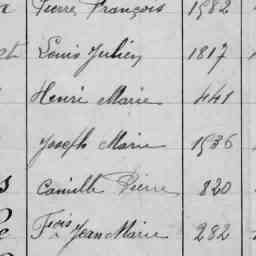 Pierre François 1582
Louis Julien 1817
Henri Marie 441
Joseph Marie 1536
Camille Pierre 820
Fçois Jean Marie 282